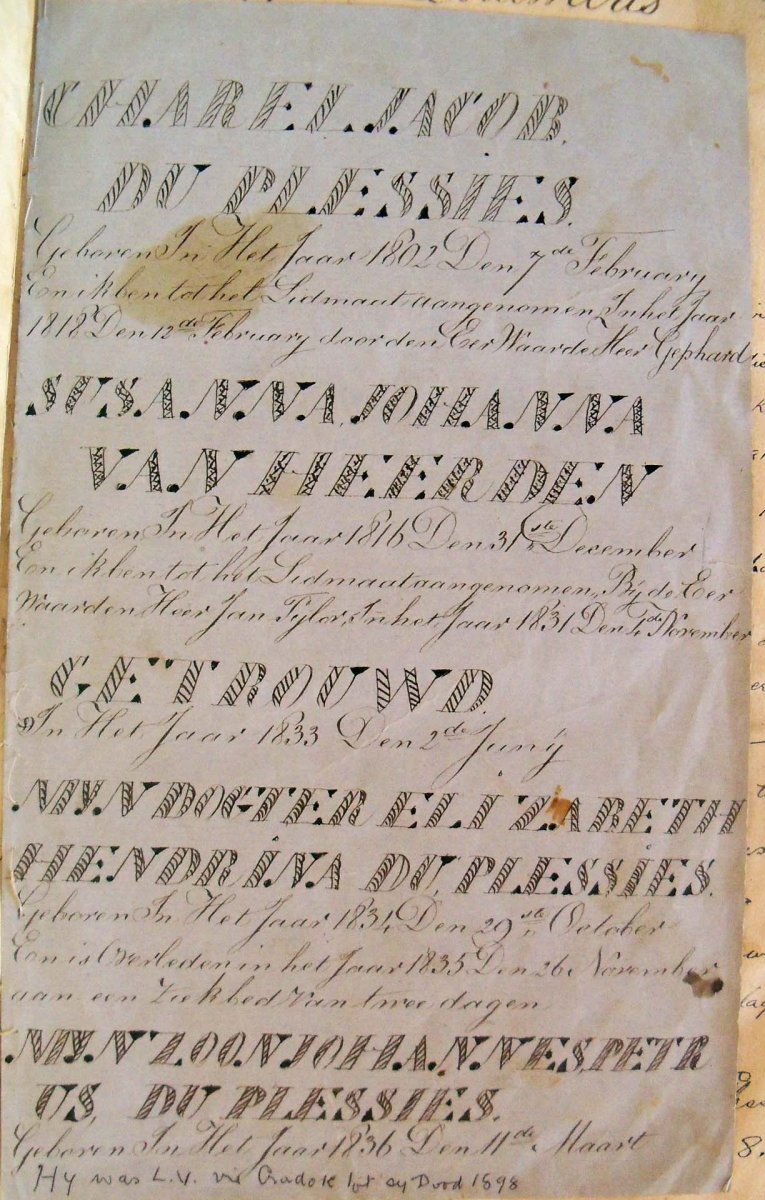 CHAREL JACOB.
DU PLESSIES.
Geboren In Het Jaar 1802 Den 7de February
En ik ben tot het Lidmaat aangenomen, In het Jaar
1818 Den 12de February door den Eer Waarde Heer Gephard
SUSANNA, JOHANNA
VAN HEERDEN
Geboren In Het Jaar 1816 Den 31ste December
En ik ben tot het Lidmaat aangenomen, By de Eer
Waarden Heer Jan Tylor, In het Jaar 1831 Den 4de November
GETROUWD.
In Het Jaar 1833 Den 2de Juny
MYN DOGTER ELIZABETH
HENDRINA DU, PLESSIES.
Geboren In Het Jaar 1834, Den 29ste October
En is Overleden in het Jaar 1835 Den 26 November
aan een ziekbed van twee dagen
MYN ZOON JOHANNES, PETR
US, DU PLESSIES.
Geboren In Het Jaar 1836 Den 11de Maart
Hy was L.V. vir Cradok tot sy Dood 1898